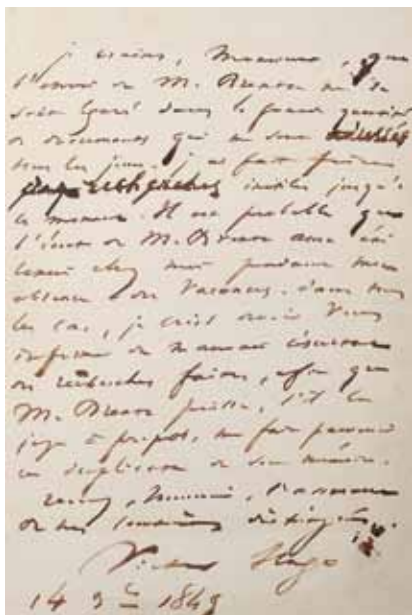 je crains, Monsieur, que
l'envoi de M. Bre ne se
soit égaré dans la grande quantité
de documents qui me sont arrivés
tous les jours. J'ai fait faire
recherches inutiles jusqu'à
ce moment. Il est probable que
l'envoi de M. aura été
chez moi pendant mon
absence des vacances. Dans tous
les cas, je crois devoir vous
informer du mauvais
des recherches faites, afin que
M. puisse, s'il le
juge à propos, me faire parvenir
un duplicata de son mémoire.
Recevez, Monsieur, l'assurance
de mes sentiments distingués.
Victor Hugo
14 9bre 1849